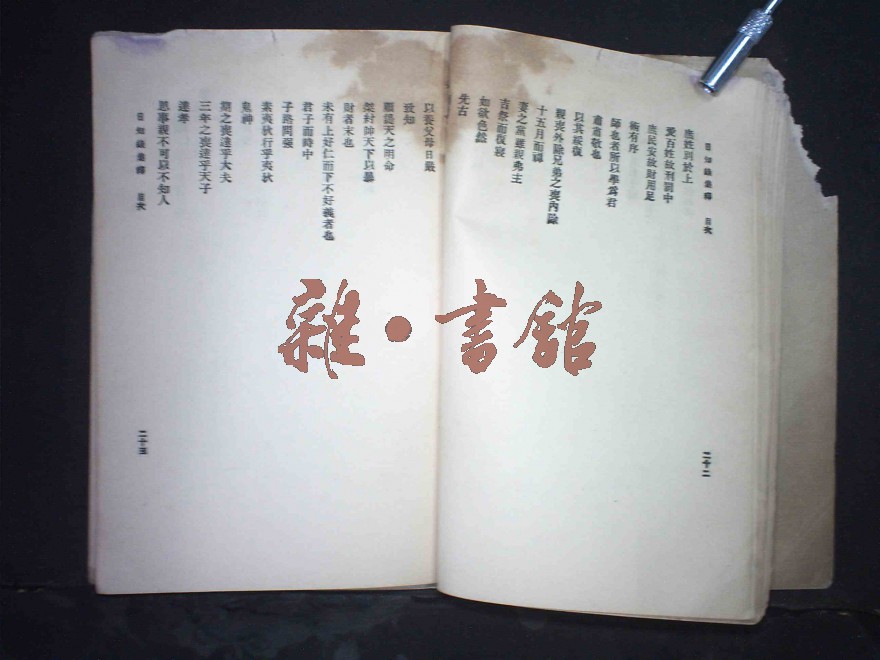 日知錄集釋 目次
庶姓別於上
愛百姓故刑罰中
庶民安故財用足
術有序
師也者所以學爲君
肅肅敬也
以其綏復
親喪外除兄弟之喪內除
十五月而禫
妻之黨雖親弗主
吉祭而復寢
如欲色然
先古
二十二
以養父母日嚴
致知
顧諟天之明命
桀紂帥天下以暴
財者末也
未有上好仁而下不好義者也
君子而時中
子路問強
素夷狄行乎夷狄
鬼神
期之喪達乎大夫
三年之喪達乎天子
達孝
思事親不可以不知人
日知錄集釋 目次
二十三
雜·書館